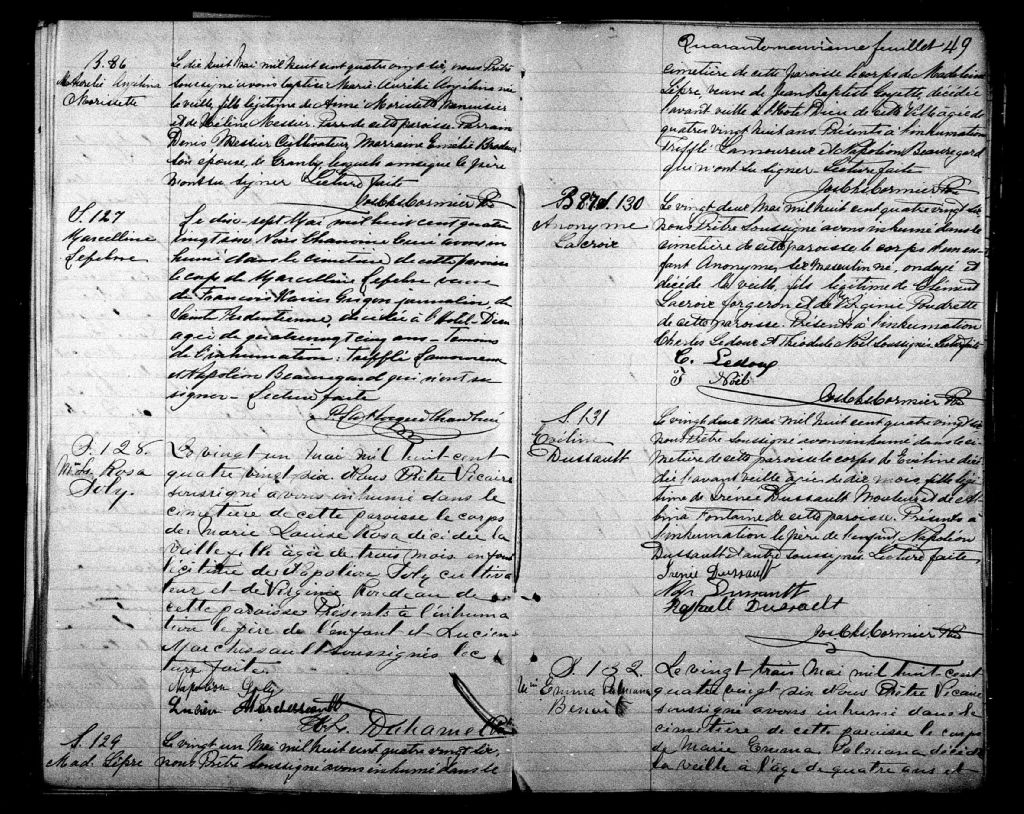 B. 86
Morissette
Le dix huit Mai mil huit cent quatre vingt six, nous Prêtre
soussigné avons baptisé Marie Aurélie Angélina née
la veille, fille légitime de Aimé Morissette Menuisier
et de Méline Messier. Parr de cette paroisse Parrain
Denis Messier Cultivateur Marraine Emélie
son épouse, de Granby lesquels ainsi que le père
n'ont su signer Lecture faite
Jos Chs Cormier Ptr
S. 127
Marcelline
Lefebvre
Le dix-sept Mai mil huit cent quatre
vingt six Nous Chanoine Curé avons in
humé dans le cimetière de cette paroisse
le corps de Marcelline Lefebvre veuve
de François Xavier journalier, de
Sainte Pudentienne, décédée à l'Hotel-Dieu
agée de quatre vingt cinq ans - Témoins
de l'inhumation: Trefflé Lamoureux
et Napoléon Beauregard qui n'ont su
signer - Lecture faite
S. 128.
Rosa
Joly.
Le vingt un Mai mil huit cent
quatre vingt six. Nous Prêtre Vicaire
soussigné avons inhumé dans le
cimetière de cette paroisse le corps
de Marie Louise Rosa décédée la
veille, fille âgée de trois mois enfant
légitime de Napoléon Joly cultiva
teur et de Virginie Riendeau de
cette paroisse Présents à l'inhuma
tion le père de l'enfant et Lucien
Marchessault soussignés lec
ture faite
Napoléon Joly
Lucien Marchessault
Duhamel Ptr
S. 129
Mad. Lépre
Le vingt un Mai mil huit cent quatre vingt six
nous Prêtre soussigné avons inhumé dans le
Quaranteneuvième feuillet 49
cimetière de cette paroisse le corps de Madeleine
Lépre veuve de Jean Baptiste Goyette, décédée
avant veille à l'Hotel Dieu de cette Ville âgée de
quatre vingt huit ans. Présents à l'inhumation
Trefflé Lamoureux et Napoléon Beauregard
qui n'ont su signer - Lecture faite
Jos Chs Cormier Ptr
130
Anonyme
Lacroix
Le vingt deux Mai mil huit cent quatre vingt six
nous Prêtre soussigné avons inhumé dans le
cimetière de cette paroisse le corps d'un en
fant Anonyme, sex masculin né, ondoyé et
décédé la veille, fils légitime de Clément
Lacroix forgeron et de Virginie Paudrette
de cette paroisse. Présents à l'inhumation
Charles Ledoux et Théodule Noël soussignés Lecture faite
C. Ledoux
T Noël
Jos Chs Cormier Ptr
S. 131
Eveline
Dussault
Le vingt deux Mai mil huit cent quatre vingt six
nous Prêtre soussigné avons inhumé dans le ci
metière de cette paroisse le corps de Eveline décé
dée l'avant veille âgée de dix mois, fille légi
time de Irénée Dussault Mouleur et de Al
bina Fontaine de cette paroisse. Présents à
l'inhumation le père de l'enfant, Napoléon
Dussault et autre soussignés Lecture faite
Irenée Dussault
Nap Dussault
Raphaell Dussault
Jos Chs Cormier Ptr
S. 132.
Emma Palmana
Benoit
Le vingt trois Mai mil huit cent
quatre vingt six Nous Prêtre Vicaire
soussigné avons inhumé dans le
cimetière de cette paroisse le corps
de Marie Emma Palmana décédée
la veille à l'âge de quatre ans et